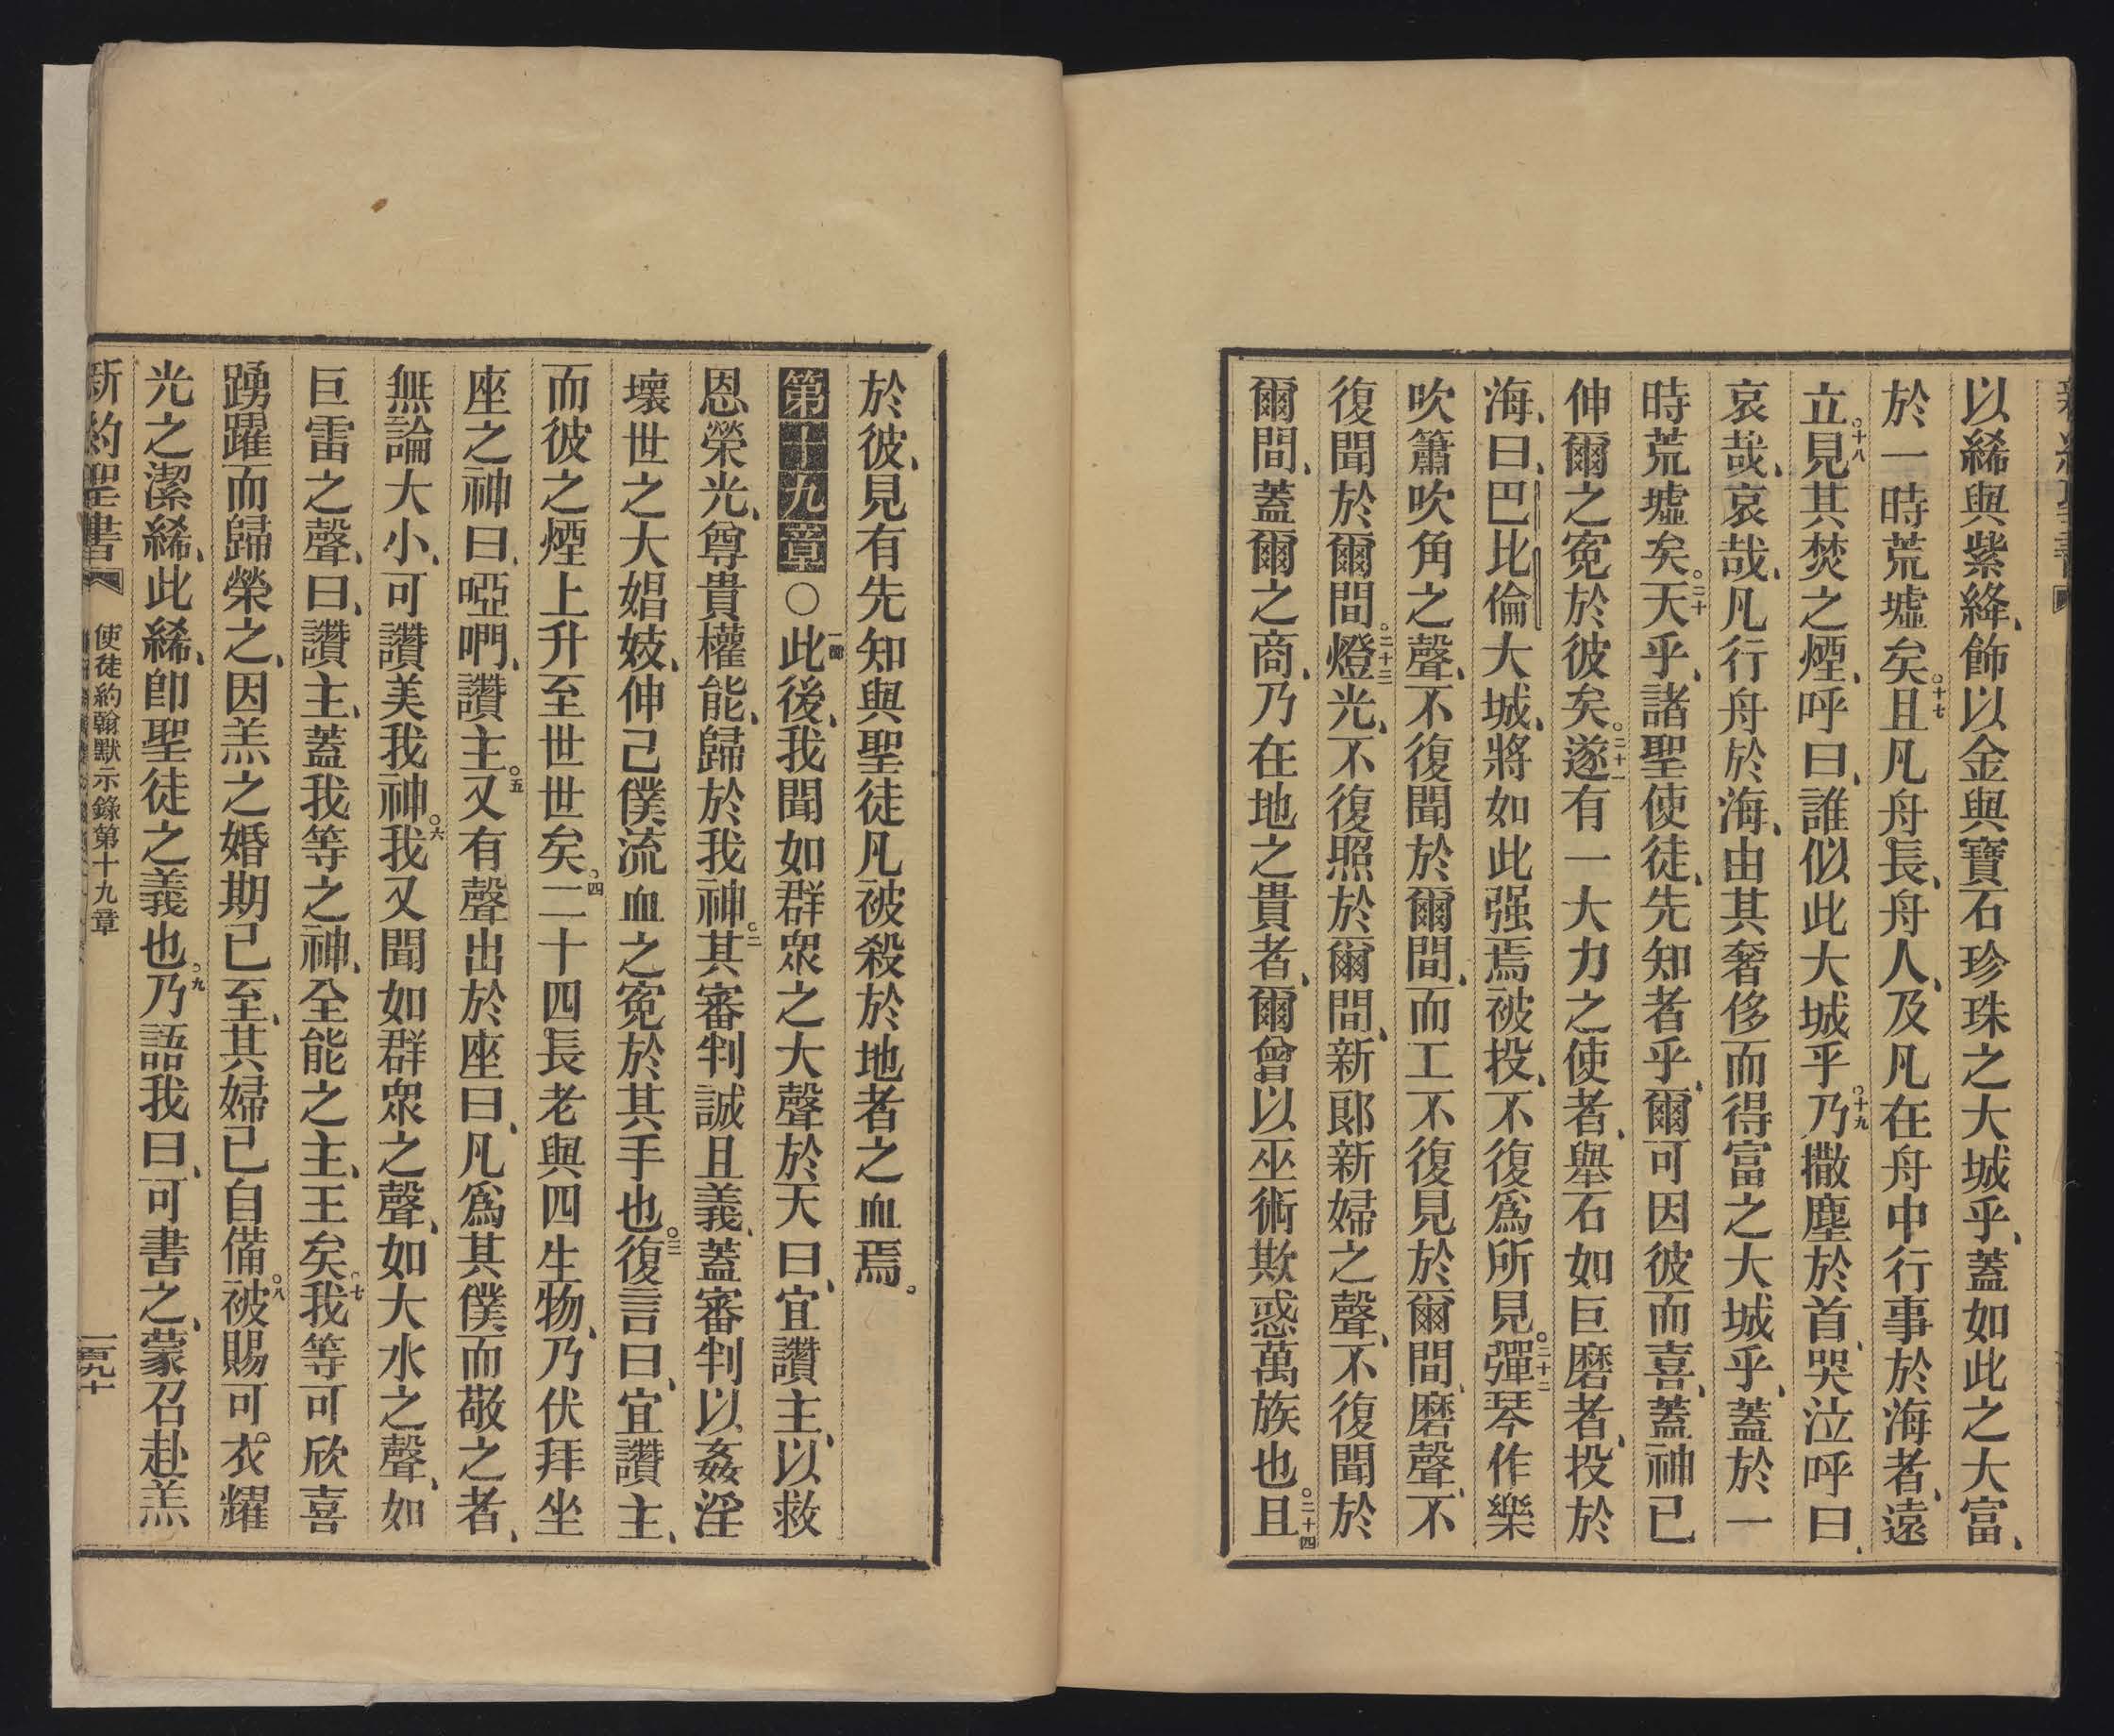 以絺與紫絳、飾以金與寶石珍珠之大城乎、蓋如此之大富、
於一時荒墟矣。十七且凡舟長、舟人、及凡在舟中行事於海者、遠
立。十八見其焚之煙、呼曰、誰似此大城乎。十九乃撒塵於首、哭泣呼曰、
哀哉、哀哉、凡行舟於海、由其奢侈而得富之大城乎、蓋於一
時荒墟矣。二十天乎、諸聖使徒、先知者乎、爾可因彼而喜、蓋神已
伸爾之寃於彼矣。二十一遂有一大力之使者、舉石如巨磨者、投於
海、曰、巴比倫大城、將如此强焉被投、不復爲所見。二十二彈琴作樂
吹簫吹角之聲、不復聞於爾間、而工不復見於爾間、磨聲、不
復聞於爾間。二十三燈光、不復照於爾間、新郞新婦之聲、不復聞於
爾間、蓋爾之商、乃在地之貴者、爾曾以巫術欺惑萬族也。二十四且
於彼、見有先知與聖徒凡被殺於地者之血焉。
第十九章○一節此後、我聞如群衆之大聲於天曰、宜讚主、以救
恩榮光、尊貴權能、歸於我神。二其審判誠且義、蓋審判以姦淫
壞世之大娼妓、伸己僕流血之寃於其手也。三復言曰、宜讚主、
而彼之煙上升至世世矣。四二十四長老與四生物、乃伏拜坐
座之神曰、啞嗎、讚主。五又有聲出於座曰、凡爲其僕而敬之者、
無論大小、可讚美我神。六我又聞如群衆之聲、如大水之聲、如
巨雷之聲、曰、讚主、蓋我等之神、全能之主、王矣。七我等可欣喜
踴躍而歸榮之、因羔之婚期已至、其婦已自備。八被賜可衣耀
光之潔絺、此絺、卽聖徒之義也。九乃語我曰、可書之、蒙召赴羔
新約聖書 使徒約翰默示錄第十九章 一百九十